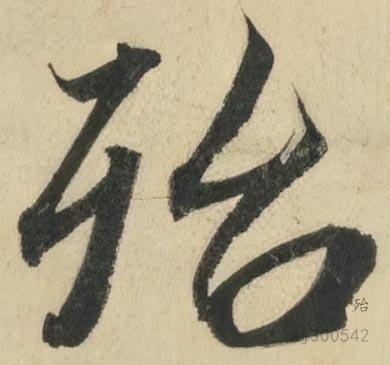 殆
殆
aj300542